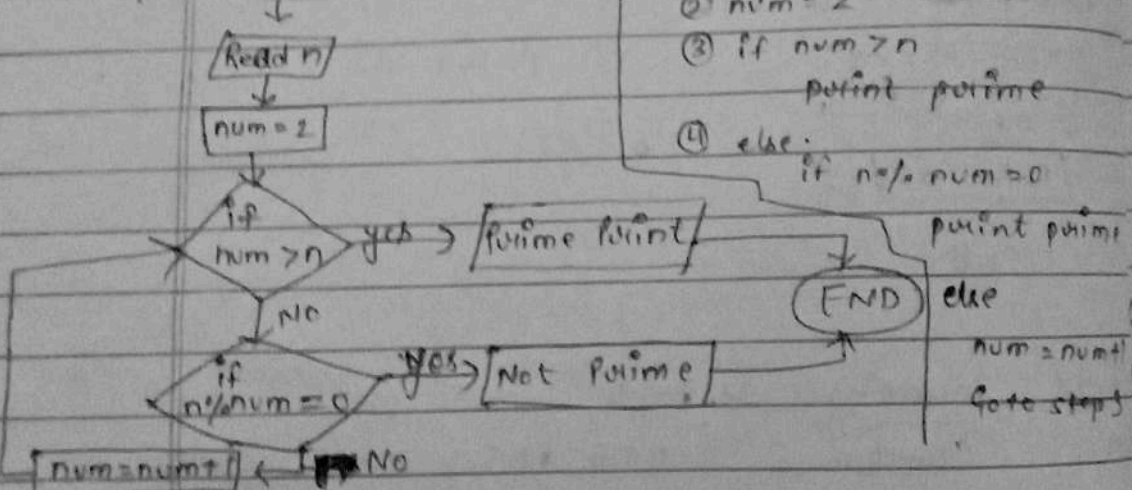 Read n
num = 2
if
num > n
yes
Prime Print
END
No
if
n % num = 0
yes
Not Prime
No
num = num + 1
② num = 2
③ if num > n
print prime
④ else.
if n % num = 0
print prime
else
num = num +
Goto step